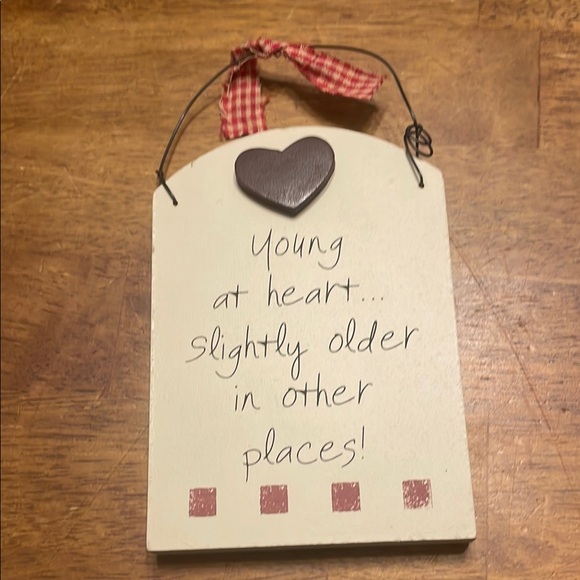 Young
at heart...
slightly older
in other
places!